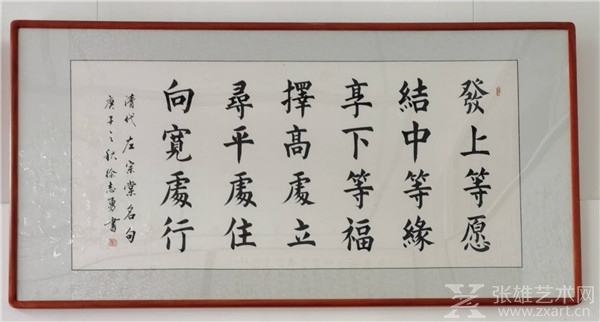 發上等愿
結中等緣
享下等福
擇高處立
尋平處住
向寬處行
清代左宗棠名句
庚子之秋徐志勇書
张雄艺术网
www.zxart.cn